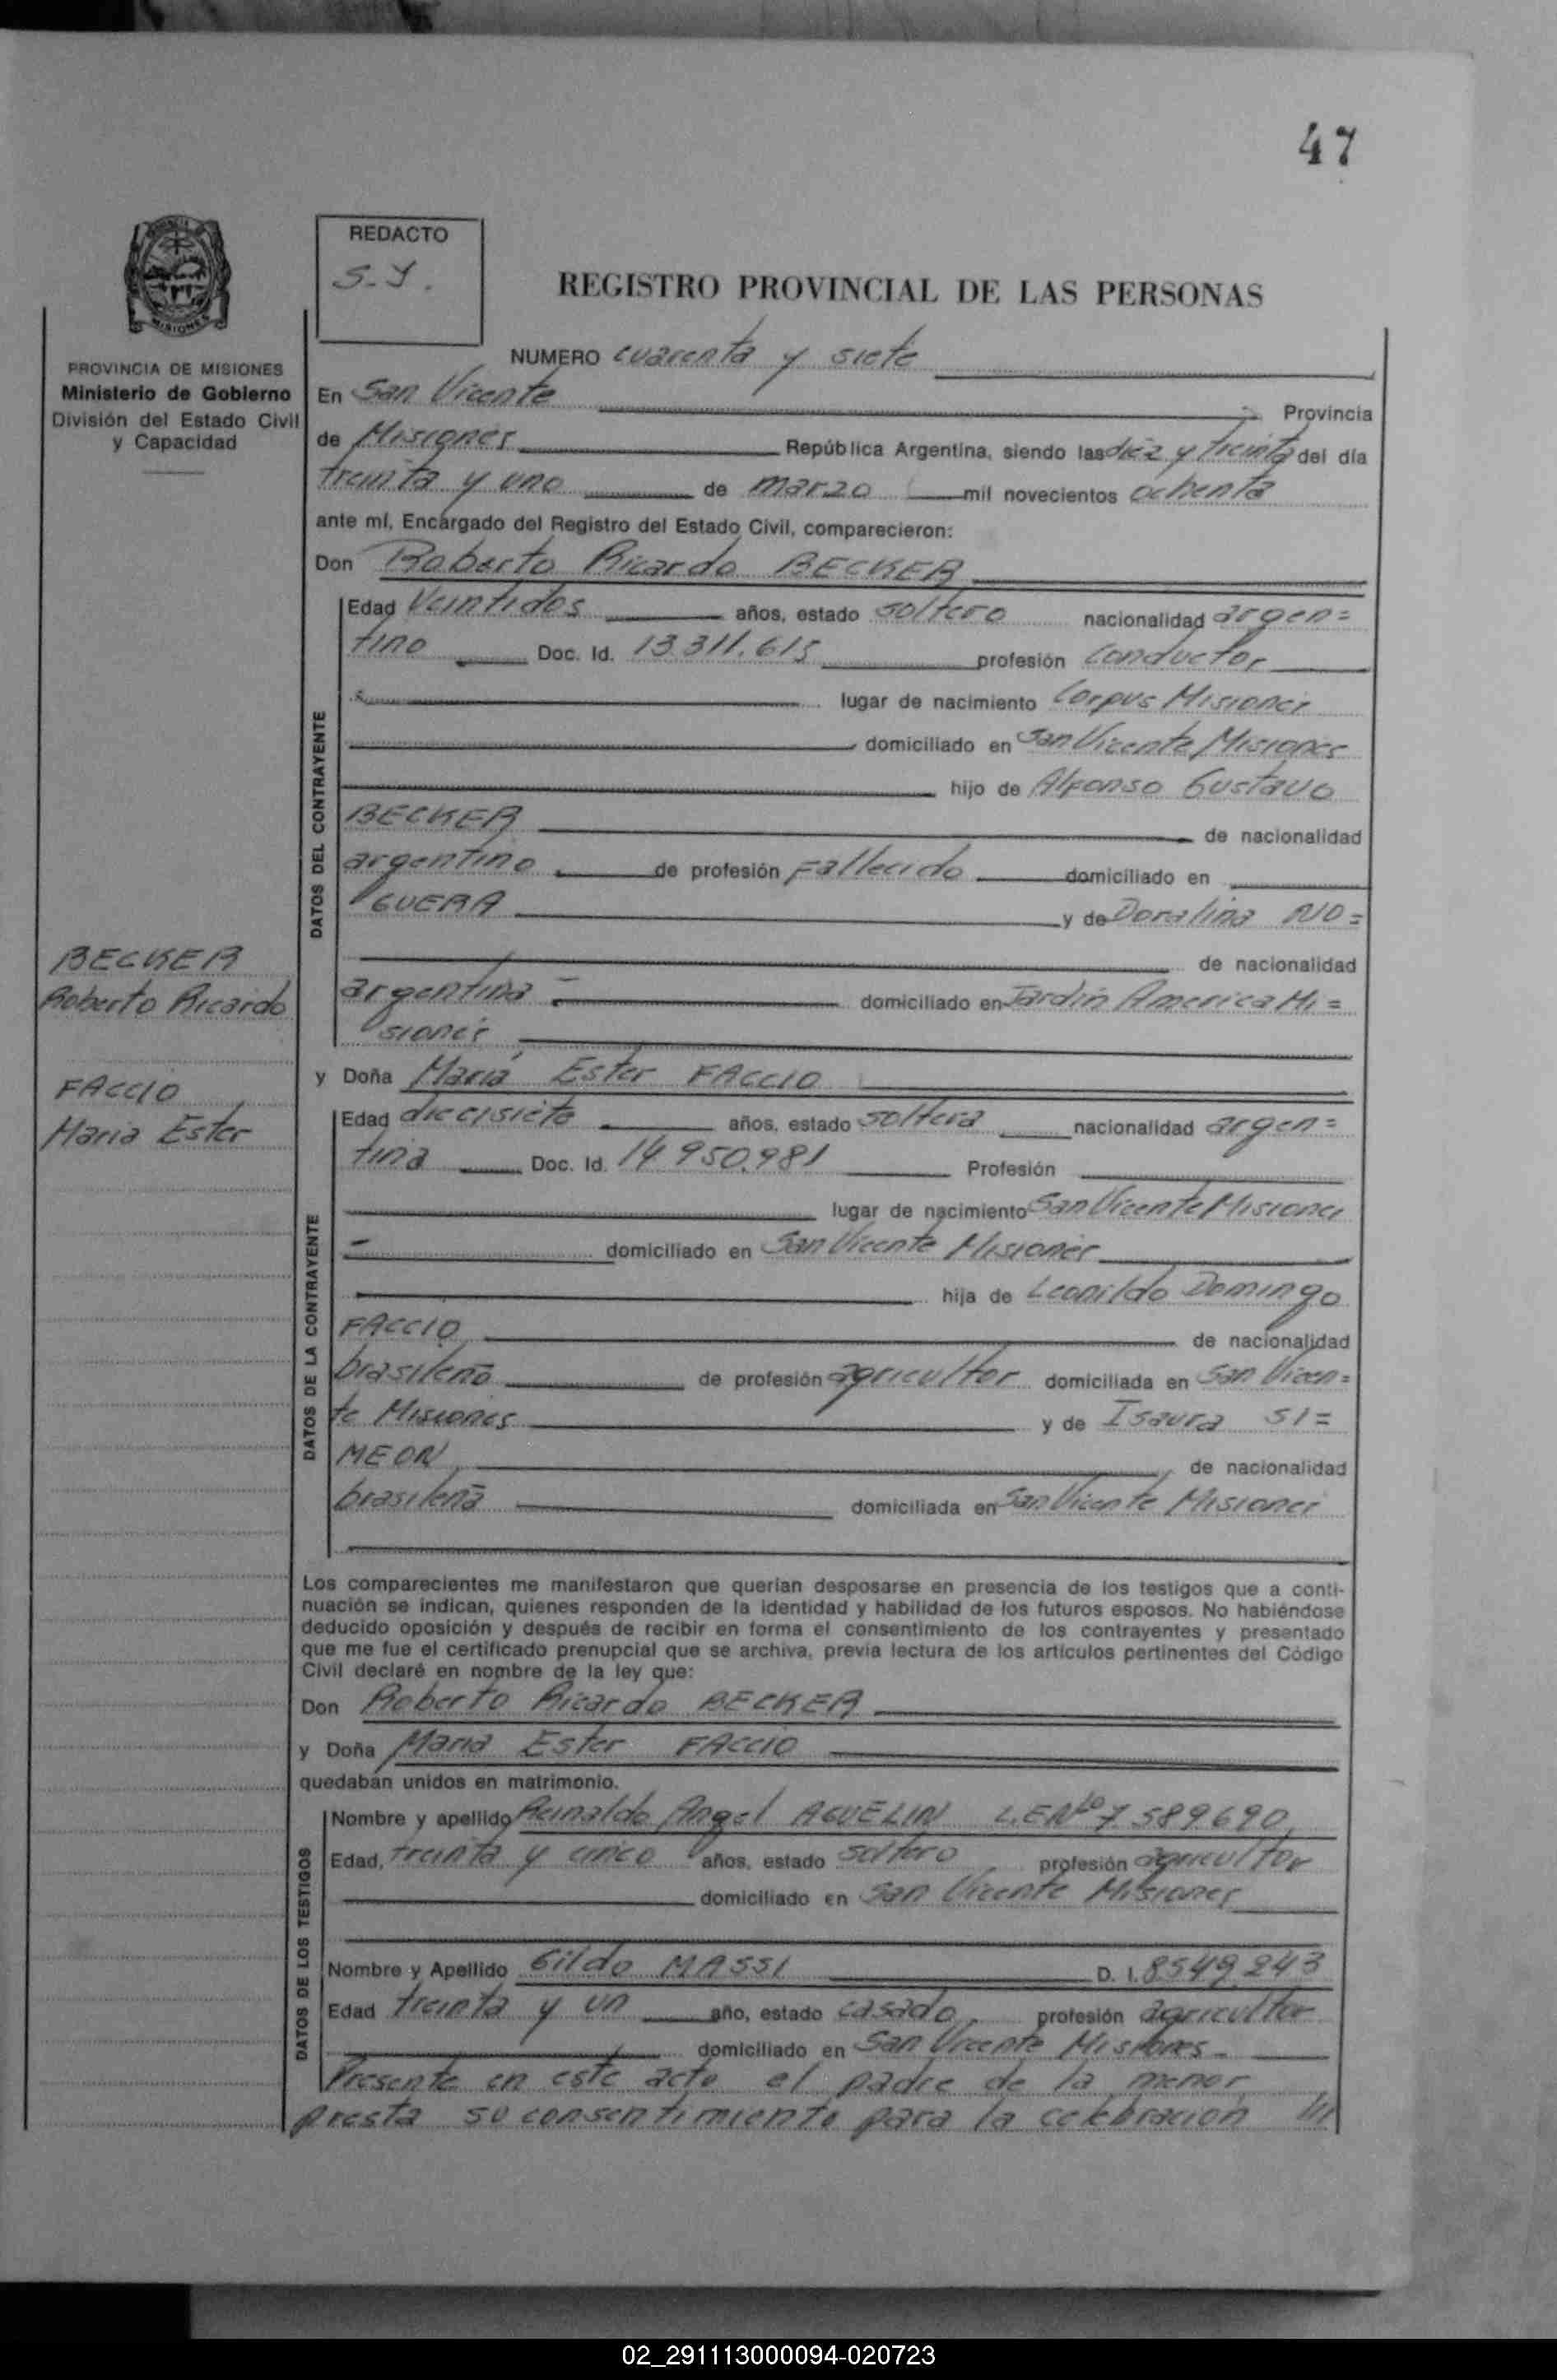 47
REDACTO
S-Y.
REGISTRO PROVINCIAL DE LAS PERSONAS
PROVINCIA DE MISIONES
Ministerio de Gobierno
División del Estado Civil
y Capacidad
NUMERO cuarenta y siete
En San Vicente Provincia
de Misiones República Argentina, siendo las diez y treinta del día
treinta y uno de marzo mil novecientos ochenta
ante mí, Encargado del Registro del Estado Civil, comparecieron:
Don Roberto Ricardo BECKER
DATOS DEL CONTRAYENTE
Edad veintidos años, estado soltero nacionalidad argen=
tino Doc. Id. 13.311.615 profesión conductor
lugar de nacimiento Corpus Misiones
domiciliado en San Vicente Misiones
hijo de Alfonso Gustavo
BECKER de nacionalidad
argentino de profesión Fallecido domiciliado en
y de Doralina NO=
GUERA
de nacionalidad
argentina - domiciliado en Jardín America Mi=
siones
BECKER
Roberto Ricardo
FACCIO
Maria Ester
y Doña María Ester FACCIO
DATOS DE LA CONTRAYENTE
Edad diecisiete años, estado soltera nacionalidad argen=
tina Doc. Id. 14.950.981 Profesión
lugar de nacimiento San Vicente Misiones
- domiciliado en San Vicente Misiones
hija de Leonildo Domingo
FACCIO de nacionalidad
brasileño de profesión agricultor domiciliada en San Vicen=
te Misiones y de Isaura SI=
MEON de nacionalidad
brasileña domiciliada en San Vicente Misiones
Los comparecientes me manifestaron que querían desposarse en presencia de los testigos que a conti-
nuación se indican, quienes responden de la identidad y habilidad de los futuros esposos. No habiéndose
deducido oposición y después de recibir en forma el consentimiento de los contrayentes y presentado
que me fue el certificado prenupcial que se archiva, previa lectura de los artículos pertinentes del Código
Civil declaré en nombre de la ley que:
Don Roberto Ricardo BECKER
y Doña Maria Ester FACCIO
quedaban unidos en matrimonio.
DATOS DE LOS TESTIGOS
Nombre y apellido Reinaldo Angel AGUELIN L.E Nº 7.589.690
Edad, treinta y cinco años, estado soltero profesión agricultor
domiciliado en San Vicente Misiones
Nombre y Apellido Gildo MASSI D. I. 8549.243
Edad treinta y un año, estado casado profesión agricultor
domiciliado en San Vicente Misiones-
Presente en este acto el padre de la menor
presta su consentimiento para la celebración ///
02_291113000094-020723